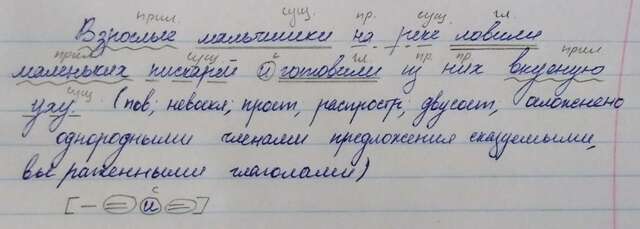 прил. сущ. пр. сущ. гл.
Взрослые мальчишки на реке ловили
прил. сущ. с. гл. пр. пр. прил.
маленьких пискарей и готовили из них вкусную
сущ.
уху. (пов; невоскл; прост, распростр; двусост, осложнено
однородными членами предложения сказуемыми,
выраженными глаголами)
с
[– = и =]